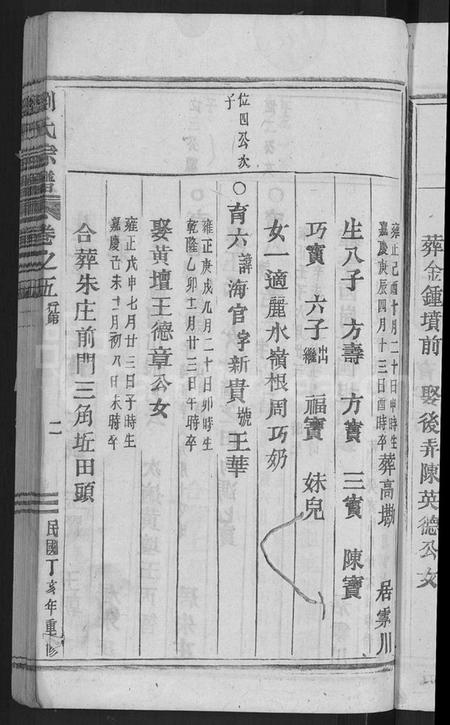 葬金鍾墳前　娶後弄陳英德公女
雍正己酉十月二十日申時生
嘉慶庚辰四月十三日酉時卒
葬高塘　居雲川
生八子　方壽　方實　三實　陳寶
巧實　六子出繼　福寶　妹兒
女一適麗水嶺根周巧奶
位四公次子
○育六諱海官字新貴號王華
雍正庚戌九月二十日卯時生
乾隆乙卯十二月廿三日午時卒
娶黄壇王德章公女
雍正戊申七月廿三日子時生
嘉慶己未十二月初八日未時卒
合葬朱庄前門三角坵田頭
劉氏宗譜　卷之五　行第　二　民國丁亥年重修